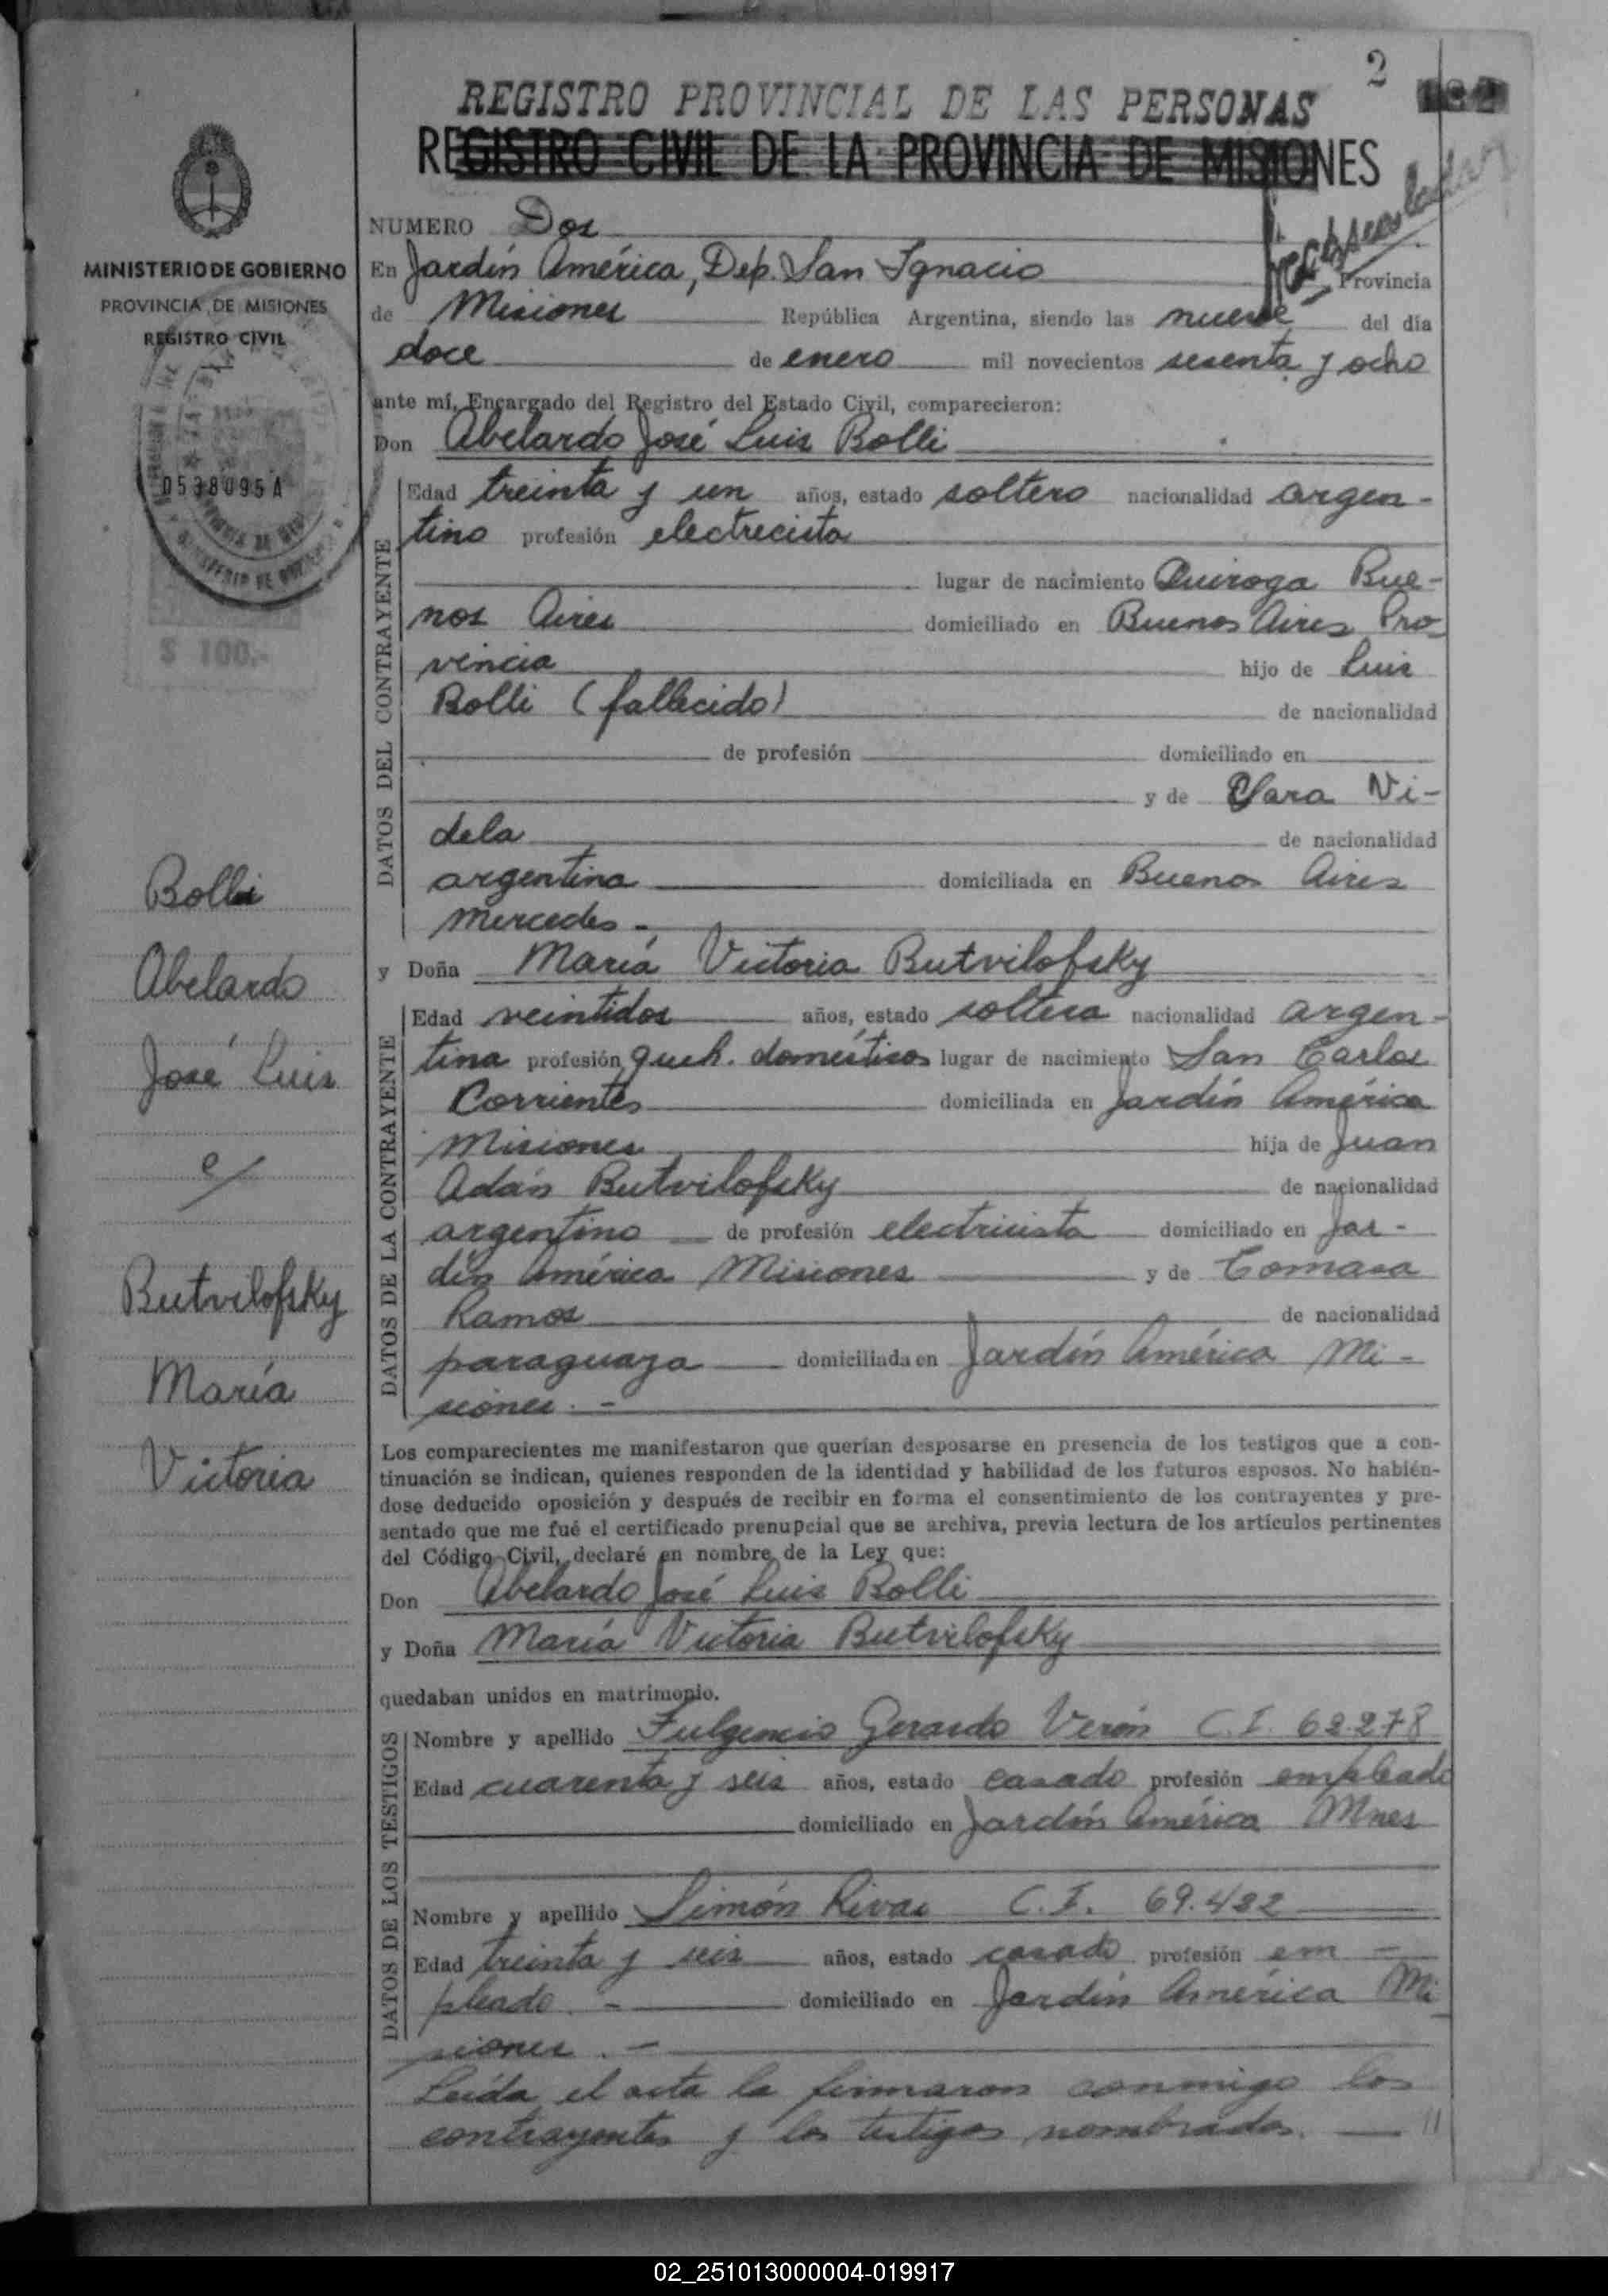 2
REGISTRO PROVINCIAL DE LAS PERSONAS
REGISTRO CIVIL DE LA PROVINCIA DE MISIONES
MINISTERIO DE GOBIERNO
PROVINCIA DE MISIONES
REGISTRO CIVIL
0538095A
$ 100.-
Bolli
Abelardo
José Luis
c/
Butvilofsky
María
Victoria
NUMERO Dos
En Jardín América, Dep. San Ignacio Provincia
de Misiones República Argentina, siendo las nueve del día
doce de enero mil novecientos sesenta y ocho
ante mí, Encargado del Registro del Estado Civil, comparecieron:
Don Abelardo José Luis Bolli
DATOS DEL CONTRAYENTE
Edad treinta y un años, estado soltero nacionalidad argen-
tino profesión electrecista
lugar de nacimiento Quiroga Bue-
nos Aires domiciliado en Buenos Aires Pro-
vincia hijo de Luis
Bolli (fallecido) de nacionalidad
de profesión domiciliado en
y de Sara Vi-
dela de nacionalidad
argentina domiciliada en Buenos Aires
Mercedes -
y Doña María Victoria Butvilofsky
DATOS DE LA CONTRAYENTE
Edad veintidos años, estado soltera nacionalidad argen-
tina profesión queh. domésticos lugar de nacimiento San Carlos
Corrientes domiciliada en Jardín América
Misiones hija de Juan
Adán Butvilofsky de nacionalidad
argentino de profesión electricista domiciliado en Jar-
dín América Misiones y de Tomasa
Ramos de nacionalidad
paraguaya domiciliada en Jardín América Mi-
siones. -
Los comparecientes me manifestaron que querían desposarse en presencia de los testigos que a con-
tinuación se indican, quienes responden de la identidad y habilidad de los futuros esposos. No habién-
dose deducido oposición y después de recibir en forma el consentimiento de los contrayentes y pre-
sentado que me fué el certificado prenupcial que se archiva, previa lectura de los artículos pertinentes
del Código Civil, declaré en nombre de la Ley que:
Don Abelardo José Luis Bolli
y Doña María Victoria Butvilofsky
quedaban unidos en matrimonio.
DATOS DE LOS TESTIGOS
Nombre y apellido Fulgencio Gerardo Verón C.I. 62.278
Edad cuarenta y seis años, estado casado profesión empleado
domiciliado en Jardín América Mnes
Nombre y apellido Simón Rivas C.I. 69.482
Edad treinta y seis años, estado casado profesión em-
pleado. - domiciliado en Jardín América Mi
siones. -
Leída el acta la firmaron conmigo los
contrayentes y los testigos nombrados. — //
02_251013000004-019917